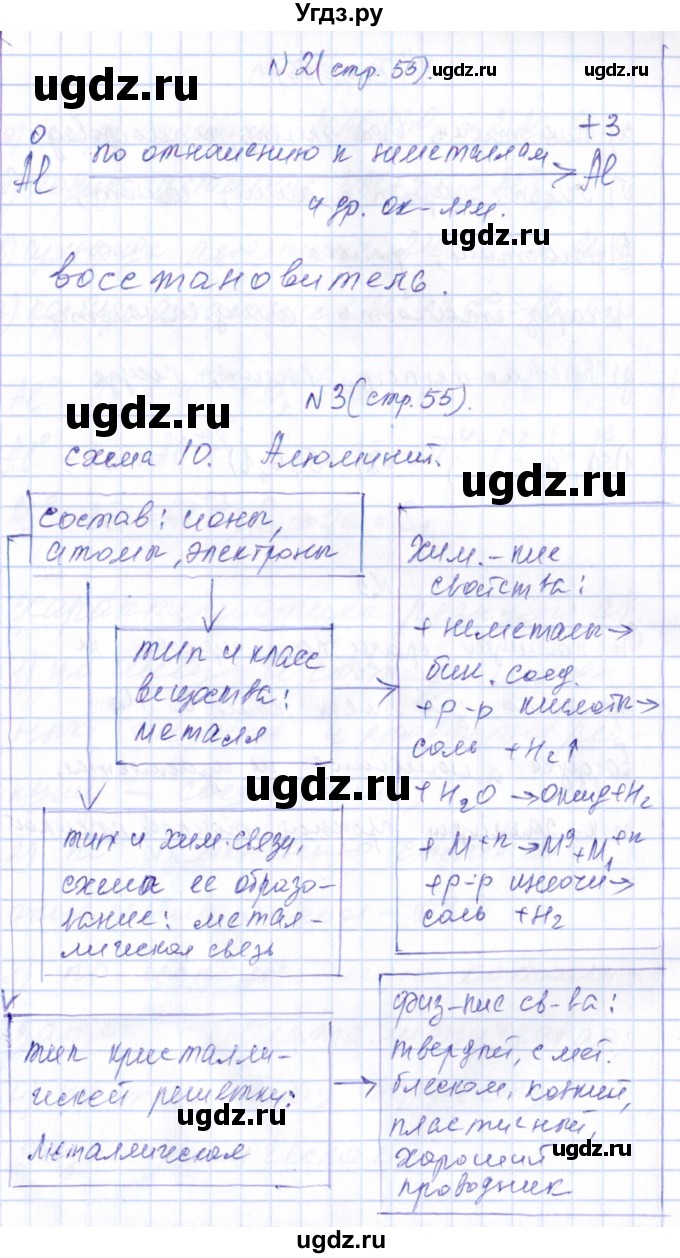 Угдз.ру
ugdz.ru
ugdz.ru
ugdz.ru
N2(стр. 55).
0
+3
Al по отношению к неметаллам Al
и др. ок-лям.
ugdz.ru
восстановитель.
N3(стр.55).
ugdz.ru
схема 10. Алюминий.
ugdz.ru
состав: ионы,
атомы, электроны
тип и класс
вещества:
металл
Хим.-кие
свойства:
+ неметалы→
бин. соед.
+р-р кислоты→
соль +H2↑
+ H2O →оксид+H2
+ M+n→M0+M1+n
+р-р щелочи→
соль +H2
ugdz.ru
ugdz.ru
тип и хим. связи,
схема ее образо-
вание: метал-
лическая связь
тип кристалли-
ческой решетки:
ugdz.ru
Металлическая
физ-кие св-ва:
твердый, с мет.
блеском,
пластичный,
хороший
проводник
ugdz.ru
ugdz.ru